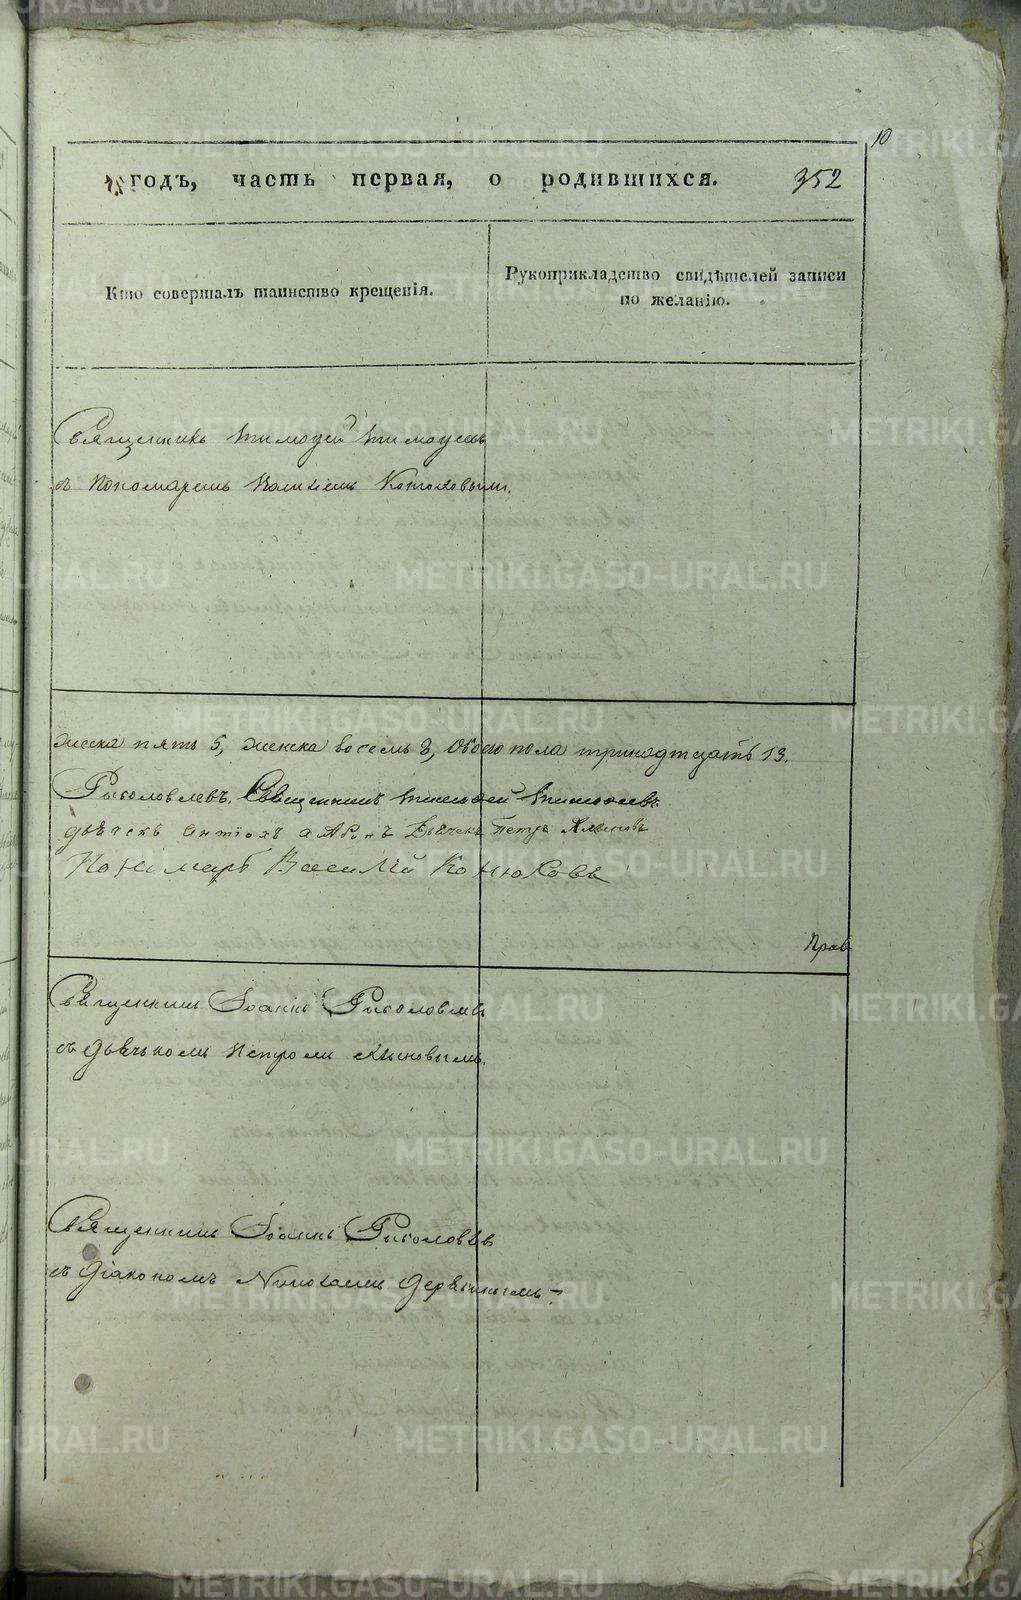 10
годъ, часть первая, о родившихся. 352
Кто совершалъ таинство крещенія.
Рукоприкладство свидѣтелей записи
по желанію.
Священникъ Тимоѳей Тимоѳеевъ
съ Пономаремъ Конюховымъ.
жеска пять 5, женска восемь 8, обоего пола тринадтцать 13.
Рыболовлевъ. Священникъ Тимоѳей Тимоѳеевъ
дьячекъ Дьячекъ Петръ
Пономарь Василій Конюховъ
Прав
Священникъ Іоаннъ Рыболовлевъ
съ дьячькомъ Петромъ
Священникъ Іоаннъ Рыболовлевъ
съ Діакономъ Николаемъ
METRIKI.GASO-URAL.RU